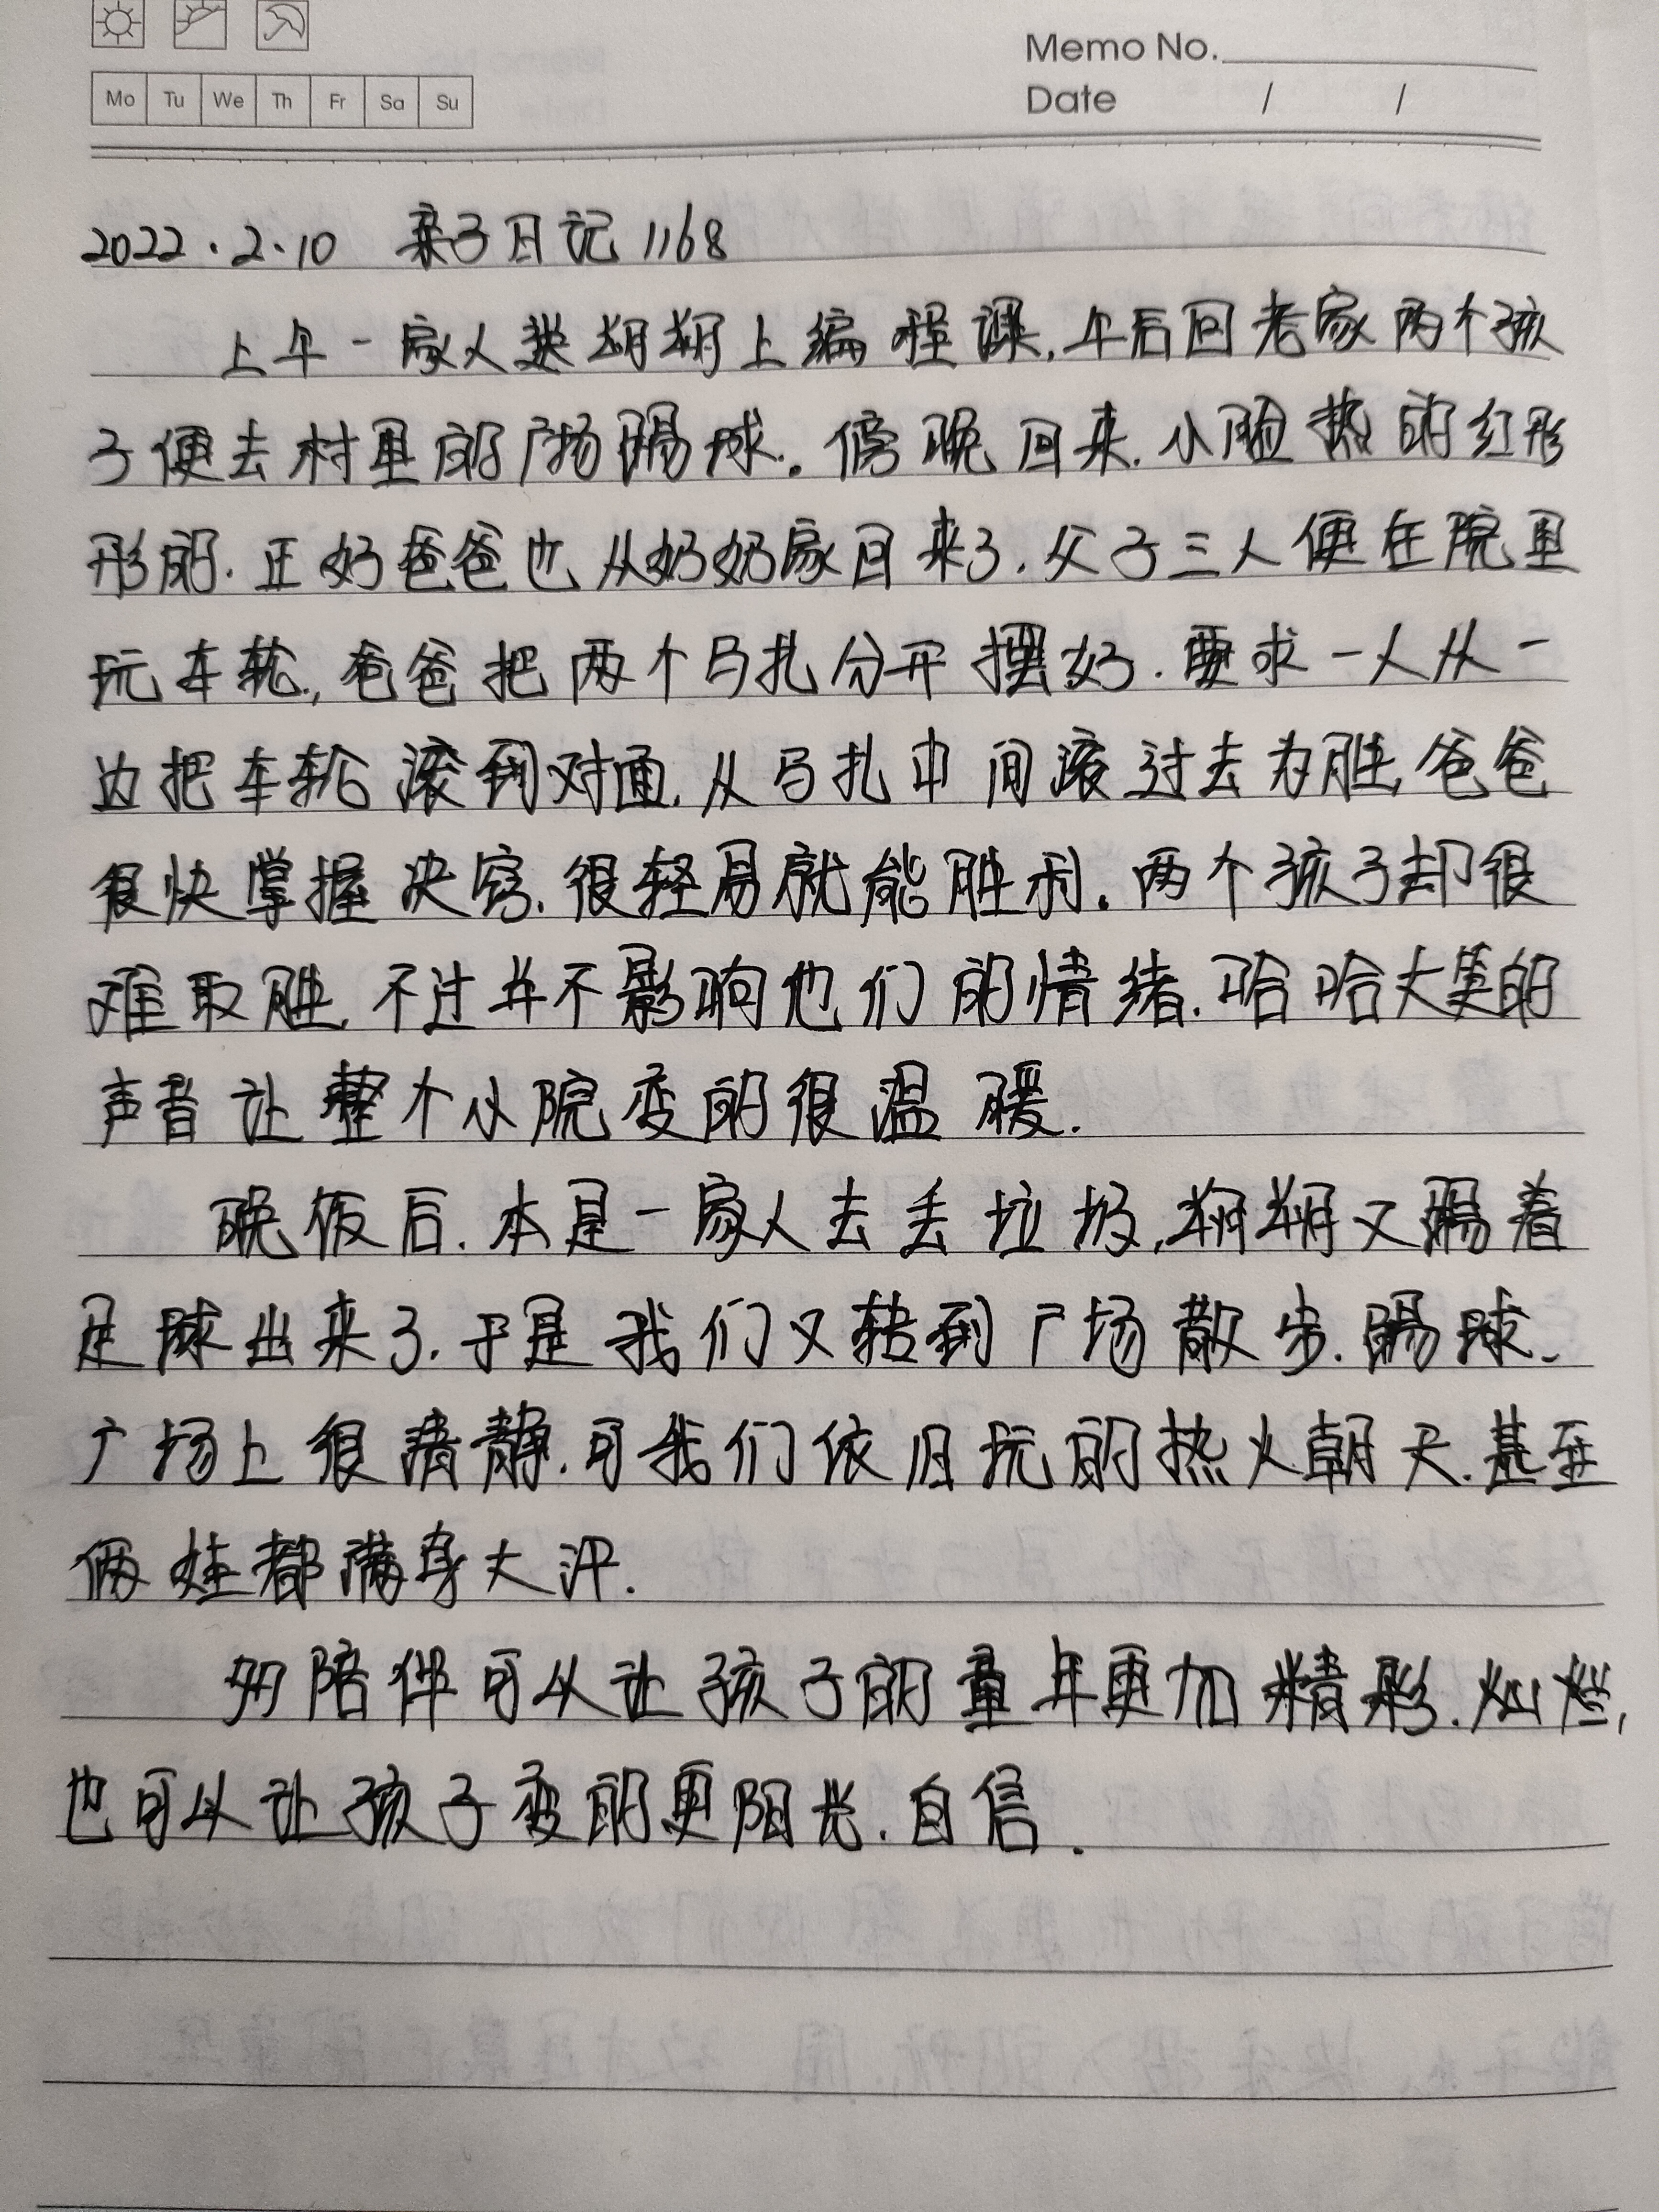 Memo No.
Mo Tu We Th Fr Sa Su
Date / /
2022.2.10 亲子日记1168
上午一家人送朔朔上编程课,午后回老家两个孩
子便去村里的广场踢球。傍晚回来,小脸热的红彤
彤的.正好爸爸也从奶奶家回来了.父子三人便在院里
玩车轮,爸爸把两个马扎分开摆好.要求一人从一
边把车轮滚到对面,从马扎中间滚过去为胜,爸爸
很快掌握决窍.很轻易就能胜利.两个孩子却很
难取胜,不过并不影响他们的情绪.哈哈大笑的
声音让整个小院变的很温暖.
晚饭后.本是一家人去丢垃圾,朔朔又踢着
足球出来了.于是我们又转到广场散步.踢球.
广场上很清静.可我们依旧玩的热火朝天.甚至
俩娃都满身大汗.
多陪伴可以让孩子的童年更加精彩.灿烂,
也可以让孩子变的更阳光.自信.